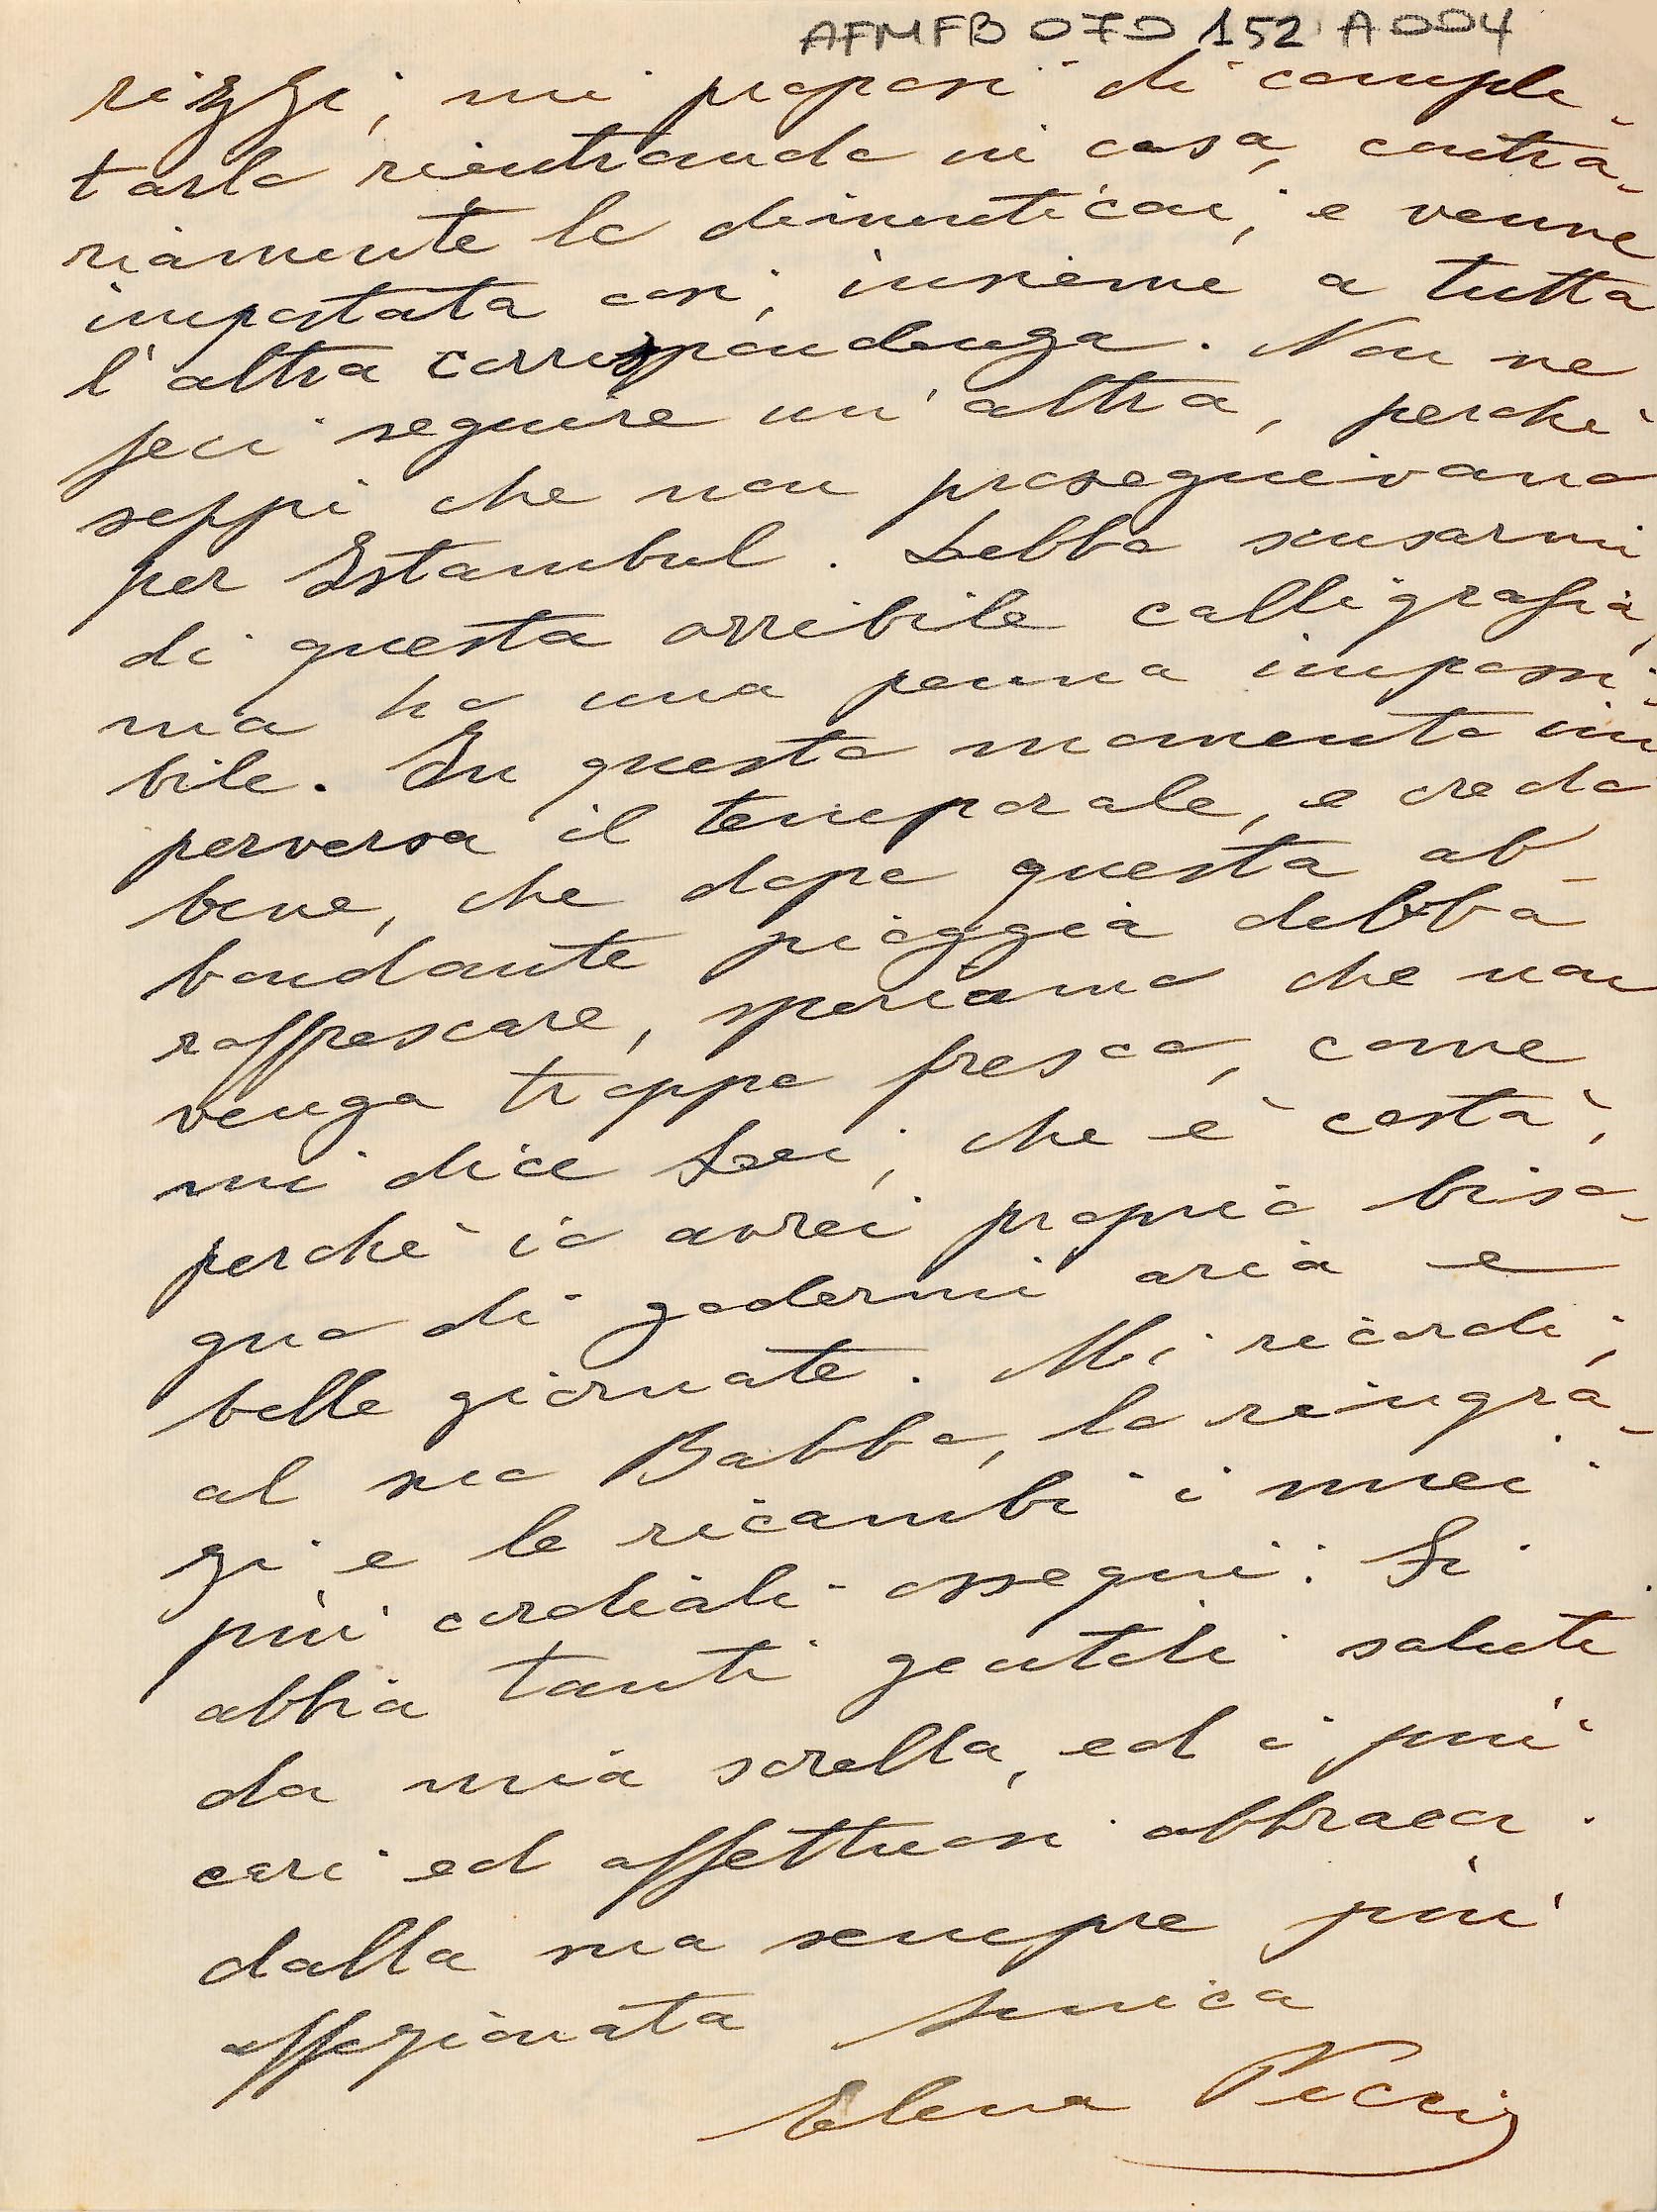 AFMFB 070 152 A004
rizzi, mi proposi di comple-
tarlo rientrando in casa, contra-
riamente lo dimenticai, e venne
impostata così, insieme a tutta
l'altra corrispondenza. Non ne
feci seguire un'altra, perchè
seppi che non proseguivano
per Istambul. Debbo scusarmi
di questa orribile calligrafia,
ma ho una penna impossi-
bile. In questo momento im
perversa il temporale, e credo
bene, che dopo questa ab-
bondante pioggia debba
raffrescare, speriamo che non
venga troppo fresco, come
mi dice Lei, che è costà,
perchè io avrei proprio biso-
gno di godermi aria e
belle giornate. Mi ricordi,
al suo Babbo, lo ringra-
zi e le ricambi i miei
più cordiali ossequi. Si
abbia tanti gentili saluti
da mia sorella, ed i più
cari ed affettuosi abbracci
dalla sua sempre più
affezionata Amica
Elena